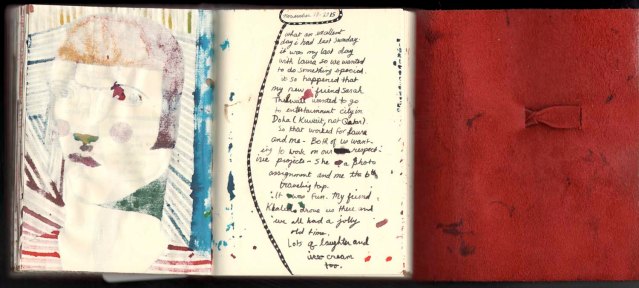 November 17 - 2005
what an excellent
day i had last Sunday.
it was my last day
with Laura so we wanted
to do something special.
it so happened that
my new friend Sarah
wanted to go
to entertainment city in
Doha (Kuwait, not Qatar).
So that worked for Laura
and me - Both of us want-
ing to work on our respect-
ive projects - She a photo
assignment and me the
traveling top.
It was fun. My friend
Khaled drove us there and
we all had a jolly
old time.
Lots of laughter and
ice cream
too.